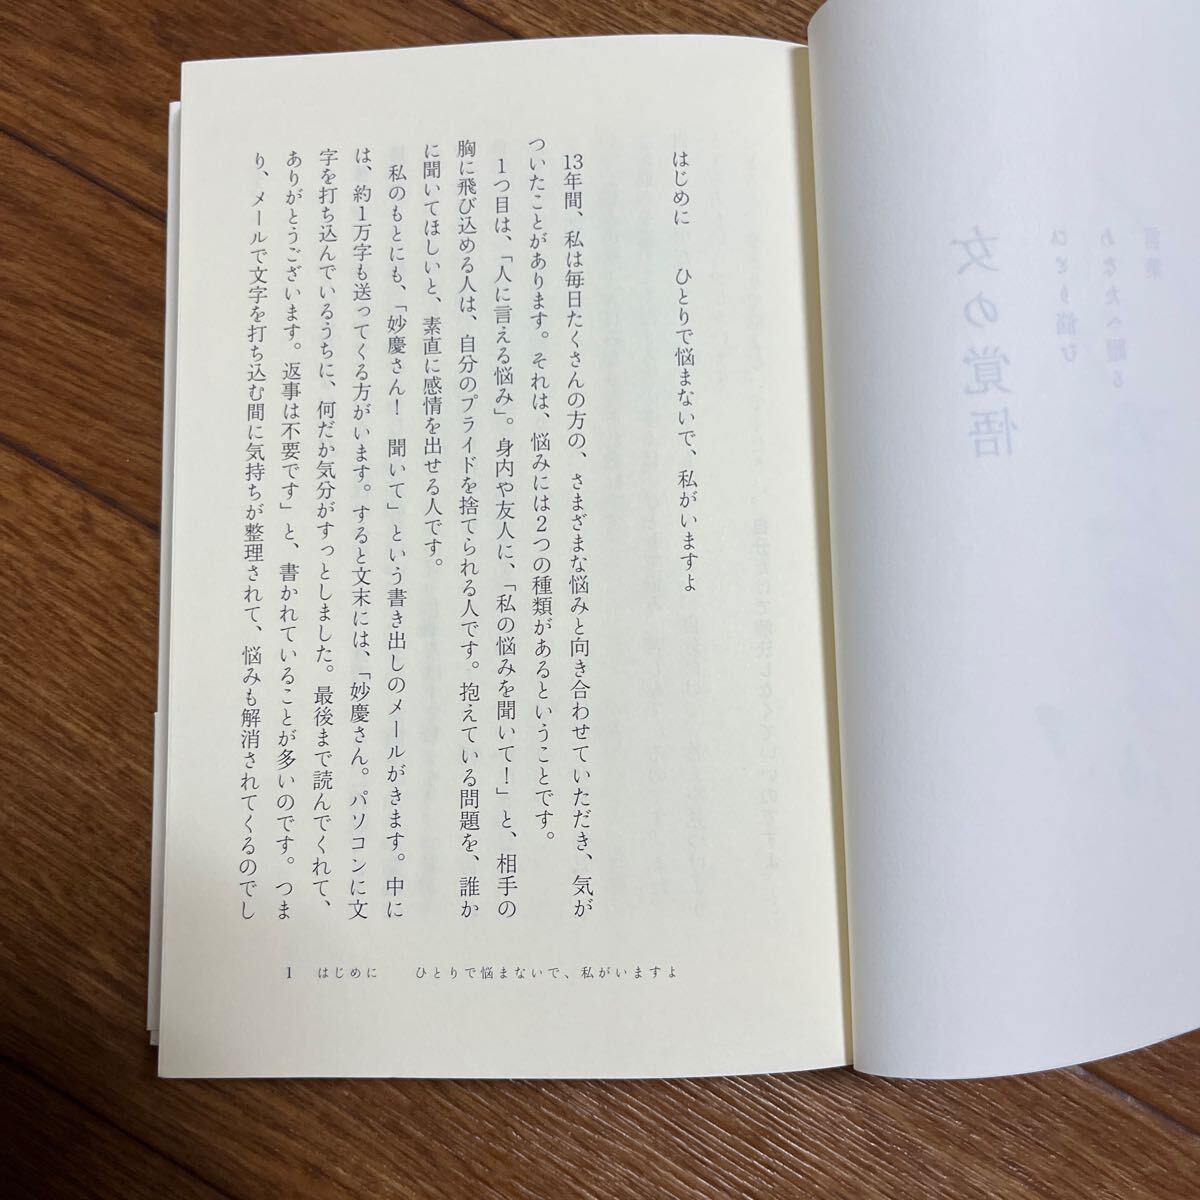 言葉
あなたへ贈る
ひとり悩む
女の覚悟
はじめに　ひとりで悩まないで、私がいますよ
13年間、私は毎日たくさんの方の、さまざまな悩みと向き合わせていただき、気が
ついたことがあります。それは、悩みには2つの種類があるということです。
1つ目は、「人に言える悩み」。身内や友人に、「私の悩みを聞いて！」と、相手の
胸に飛び込める人は、自分のプライドを捨てられる人です。抱えている問題を、誰か
に聞いてほしいと、素直に感情を出せる人です。
私のもとにも、「妙慶さん！　聞いて」という書き出しのメールがきます。中に
は、約1万字も送ってくる方がいます。すると文末には、「妙慶さん。パソコンに文
字を打ち込んでいるうちに、何だか気分がすっとしました。最後まで読んでくれて、
ありがとうございます。返事は不要です」と、書かれていることが多いのです。つま
り、メールで文字を打ち込む間に気持ちが整理されて、悩みも解消されてくるのでし
1　はじめに　ひとりで悩まないで、私がいますよ